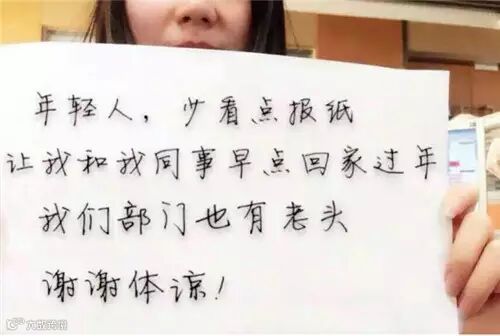 年轻人，少看点报纸
让我和我同事早点回家过年
我们部门也有老头
谢谢体谅！